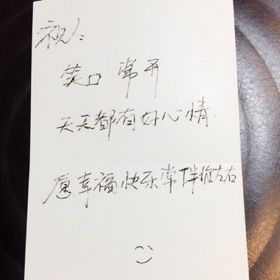 祝:
笑口 常开
天天都有好心情.
愿幸福快乐常伴你左右